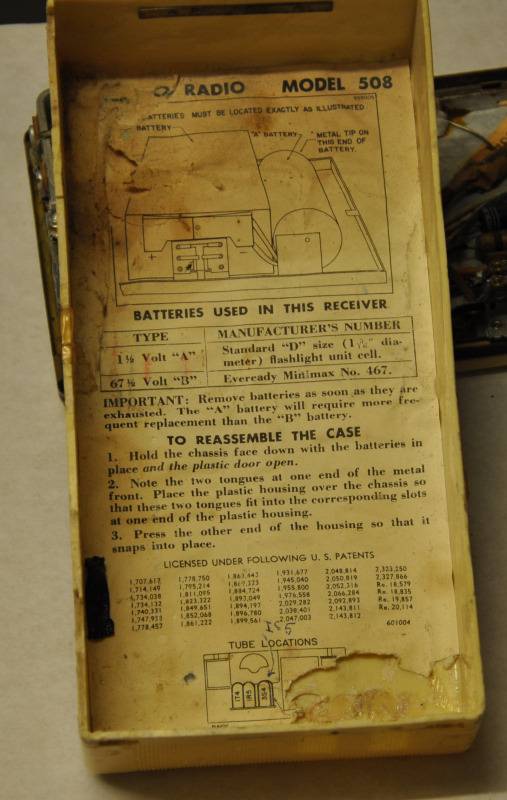 RADIO MODEL 508
BATTERIES MUST BE LOCATED EXACTLY AS ILLUSTRATED
BATTERY
"A" BATTERY
METAL TIP ON
THIS END OF
BATTERY.
+
BATTERIES USED IN THIS RECEIVER
TYPE MANUFACTURER'S NUMBER
1½ Volt "A" Standard "D" size (1 " dia-
meter) flashlight unit cell.
67½ Volt "B" Eveready Minimax No. 467.
IMPORTANT: Remove batteries as soon as they are
exhausted. The "A" battery will require more fre-
quent replacement than the "B" battery.
TO REASSEMBLE THE CASE
1. Hold the chassis face down with the batteries in
place and the plastic door open.
2. Note the two tongues at one end of the metal
front. Place the plastic housing over the chassis so
that these two tongues fit into the corresponding slots
at one end of the plastic housing.
3. Press the other end of the housing so that it
snaps into place.
LICENSED UNDER FOLLOWING U. S. PATENTS
1,707,617 1,778,750 1,931,677 2,048,814 2,323,250
1,714,149 1,795,214 1,945,040 2,050,819 2,327,866
1,734,038 1,811,095 1,884,724 1,955,800 2,052,316 Re. 18,579
1,734,132 1,823,322 1,893,049 1,976,558 2,066,284 Re. 18,835
1,740,331 1,849,651 1,894,197 2,029,282 2,092,893 Re. 19,857
1,747,933 1,852,068 1,896,780 2,038,401 2,143,811 Re. 20,114
1,778,457 1,861,222 1,899,561 2,047,003 2,143,812
601004
1S5
TUBE LOCATIONS
1T4 1R5 3S4